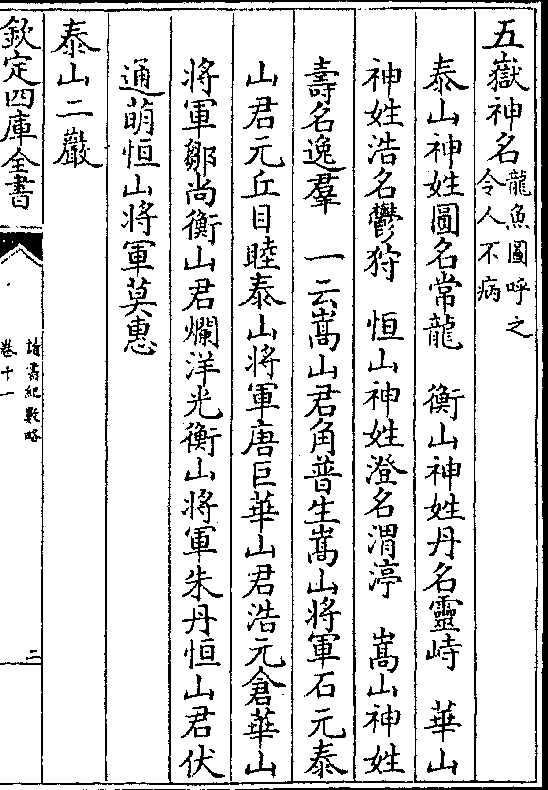 五嶽神名龍魚圖呼之令人不病
泰山神姓圓名常龍　衡山神姓丹名靈峙　華山
神姓浩名鬱狩　恒山神姓澄名渭渟　嵩山神姓
壽名逸羣　一云嵩山君角普生嵩山將軍石元泰
山君元丘目睦泰山將軍唐巨華山君浩元倉華山
將軍鄒尚衡山君爛洋光衡山將軍朱丹恒山君伏
通萌恒山將軍莫惠
泰山二巖
欽定四庫全書
讀書紀數略
卷十一
二